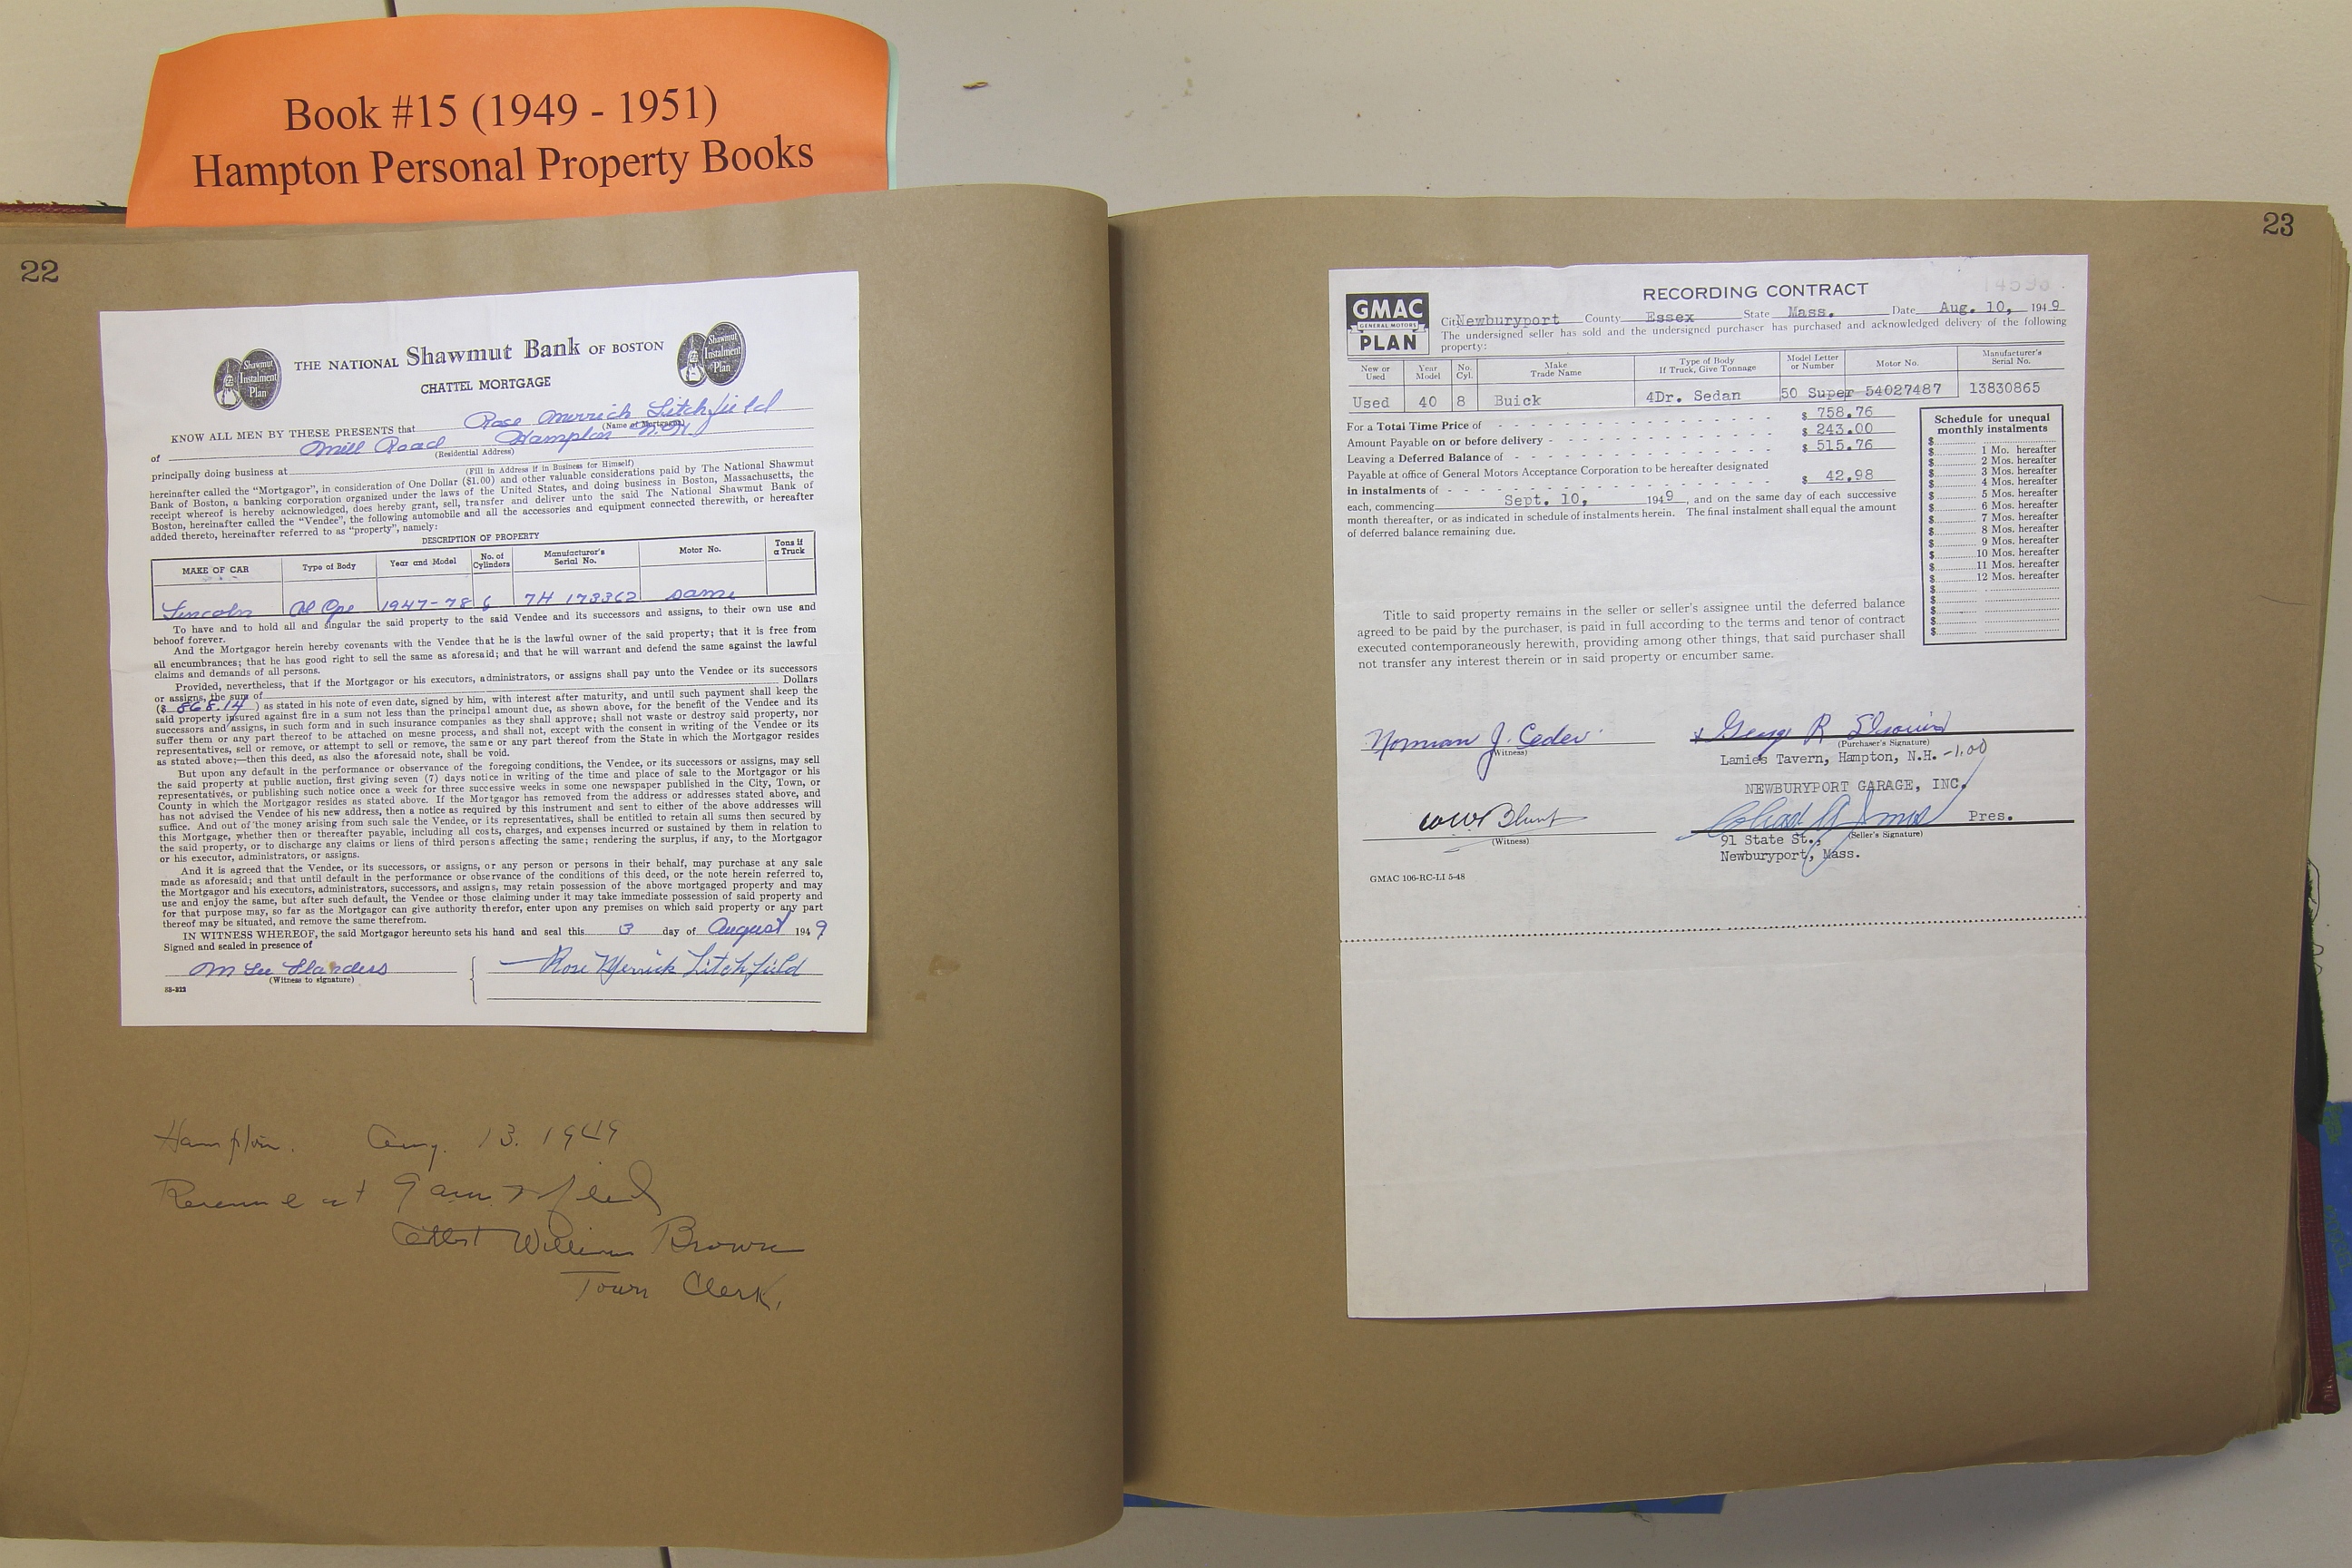 Book #15 (1949 - 1951)
Hampton Personal Property Books
22
Shawmut
Instalment
Plan
THE NATIONAL Shawmut Bank OF BOSTON
Shawmut
Instalment
Plan
CHATTEL MORTGAGE
KNOW ALL MEN BY THESE PRESENTS that Rose Merrick Litchfield
(Name of Mortgagor)
of Mill Road Hampton N.H.
(Residential Address)
principally doing business at
(Fill in Address if in Business for Himself)
hereinafter called the "Mortgagor", in consideration of One Dollar ($1.00) and other valuable considerations paid by The National Shawmut
Bank of Boston, a banking corporation organized under the laws of the United States, and doing business in Boston, Massachusetts, the
receipt whereof is hereby acknowledged, does hereby grant, sell, transfer and deliver unto the said The National Shawmut Bank of
Boston, hereinafter called the "Vendee", the following automobile and all the accessories and equipment connected therewith, or hereafter
added thereto, hereinafter referred to as "property", namely:
DESCRIPTION OF PROPERTY
MAKE OF CAR Type of Body Year and Model No. of Cylinders Manufacturer's Serial No. Motor No. Tons if a Truck
Lincoln 1947-78 7H 173362 Same
To have and to hold all and singular the said property to the said Vendee and its successors and assigns, to their own use and
behoof forever.
And the Mortgagor herein hereby covenants with the Vendee that he is the lawful owner of the said property; that it is free from
all encumbrances; that he has good right to sell the same as aforesaid; and that he will warrant and defend the same against the lawful
claims and demands of all persons.
Provided, nevertheless, that if the Mortgagor or his executors, administrators, or assigns shall pay unto the Vendee or its successors
or assigns, the sum of Dollars
($ 868.14 ) as stated in his note of even date, signed by him, with interest after maturity, and until such payment shall keep the
said property insured against fire in a sum not less than the principal amount due, as shown above, for the benefit of the Vendee and its
successors and assigns, in such form and in such insurance companies as they shall approve; shall not waste or destroy said property, nor
suffer them or any part thereof to be attached on mesne process, and shall not, except with the consent in writing of the Vendee or its
representatives, sell or remove, or attempt to sell or remove, the same or any part thereof from the State in which the Mortgagor resides
as stated above;—then this deed, as also the aforesaid note, shall be void.
But upon any default in the performance or observance of the foregoing conditions, the Vendee, or its successors or assigns, may sell
the said property at public auction, first giving seven (7) days notice in writing of the time and place of sale to the Mortgagor or his
representatives, or publishing such notice once a week for three successive weeks in some one newspaper published in the City, Town, or
County in which the Mortgagor resides as stated above. If the Mortgagor has removed from the address or addresses stated above, and
has not advised the Vendee of his new address, then a notice as required by this instrument and sent to either of the above addresses will
suffice. And out of the money arising from such sale the Vendee, or its representatives, shall be entitled to retain all sums then secured by
this Mortgage, whether then or thereafter payable, including all costs, charges, and expenses incurred or sustained by them in relation to
the said property, or to discharge any claims or liens of third persons affecting the same; rendering the surplus, if any, to the Mortgagor
or his executor, administrators, or assigns.
And it is agreed that the Vendee, or its successors, or assigns, or any person or persons in their behalf, may purchase at any sale
made as aforesaid; and that until default in the performance or observance of the conditions of this deed, or the note herein referred to,
the Mortgagor and his executors, administrators, successors, and assigns, may retain possession of the above mortgaged property and may
use and enjoy the same, but after such default, the Vendee or those claiming under it may take immediate possession of said property and
for that purpose may, so far as the Mortgagor can give authority therefor, enter upon any premises on which said property or any part
thereof may be situated, and remove the same therefrom.
IN WITNESS WHEREOF, the said Mortgagor hereunto sets his hand and seal this 3 day of August 1949
Signed and sealed in presence of
M Lee Flanders Rose Merrick Litchfield
(Witness to signature)
Hampton. Aug. 13. 1949
at 9 am & filed
Attest William Brown
Town Clerk.
23
GMAC
GENERAL MOTORS
PLAN
RECORDING CONTRACT
City Newburyport County Essex State Mass. Date Aug. 10, 1949
The undersigned seller has sold and the undersigned purchaser has purchased and acknowledged delivery of the following
property:
New or Used Year Model No. Cyl. Make Trade Name Type of Body If Truck, Give Tonnage Model Letter or Number Motor No. Manufacturer's Serial No.
Used 40 8 Buick 4Dr. Sedan 50 Super 54027487 13830865
For a Total Time Price of $ 758.76
Amount Payable on or before delivery $ 243.00
Leaving a Deferred Balance of $ 515.76
Payable at office of General Motors Acceptance Corporation to be hereafter designated
in instalments of $ 42.98
each, commencing Sept. 10, 1949, and on the same day of each successive
month thereafter, or as indicated in schedule of instalments herein. The final instalment shall equal the amount
of deferred balance remaining due.
Schedule for unequal
monthly instalments
$
$ 1 Mo. hereafter
$ 2 Mos. hereafter
$ 3 Mos. hereafter
$ 4 Mos. hereafter
$ 5 Mos. hereafter
$ 6 Mos. hereafter
$ 7 Mos. hereafter
$ 8 Mos. hereafter
$ 9 Mos. hereafter
$ 10 Mos. hereafter
$ 11 Mos. hereafter
$ 12 Mos. hereafter
$
$
$
$
Title to said property remains in the seller or seller's assignee until the deferred balance
agreed to be paid by the purchaser, is paid in full according to the terms and tenor of contract
executed contemporaneously herewith, providing among other things, that said purchaser shall
not transfer any interest therein or in said property or encumber same.
Norman J. George R
(Witness) (Purchaser's Signature)
Lamies Tavern, Hampton, N.H. -1.00
NEWBURYPORT GARAGE, INC.
WW Blunt Pres.
(Witness) (Seller's Signature)
91 State St.,
Newburyport, Mass.
GMAC 106-RC-LI 5-48